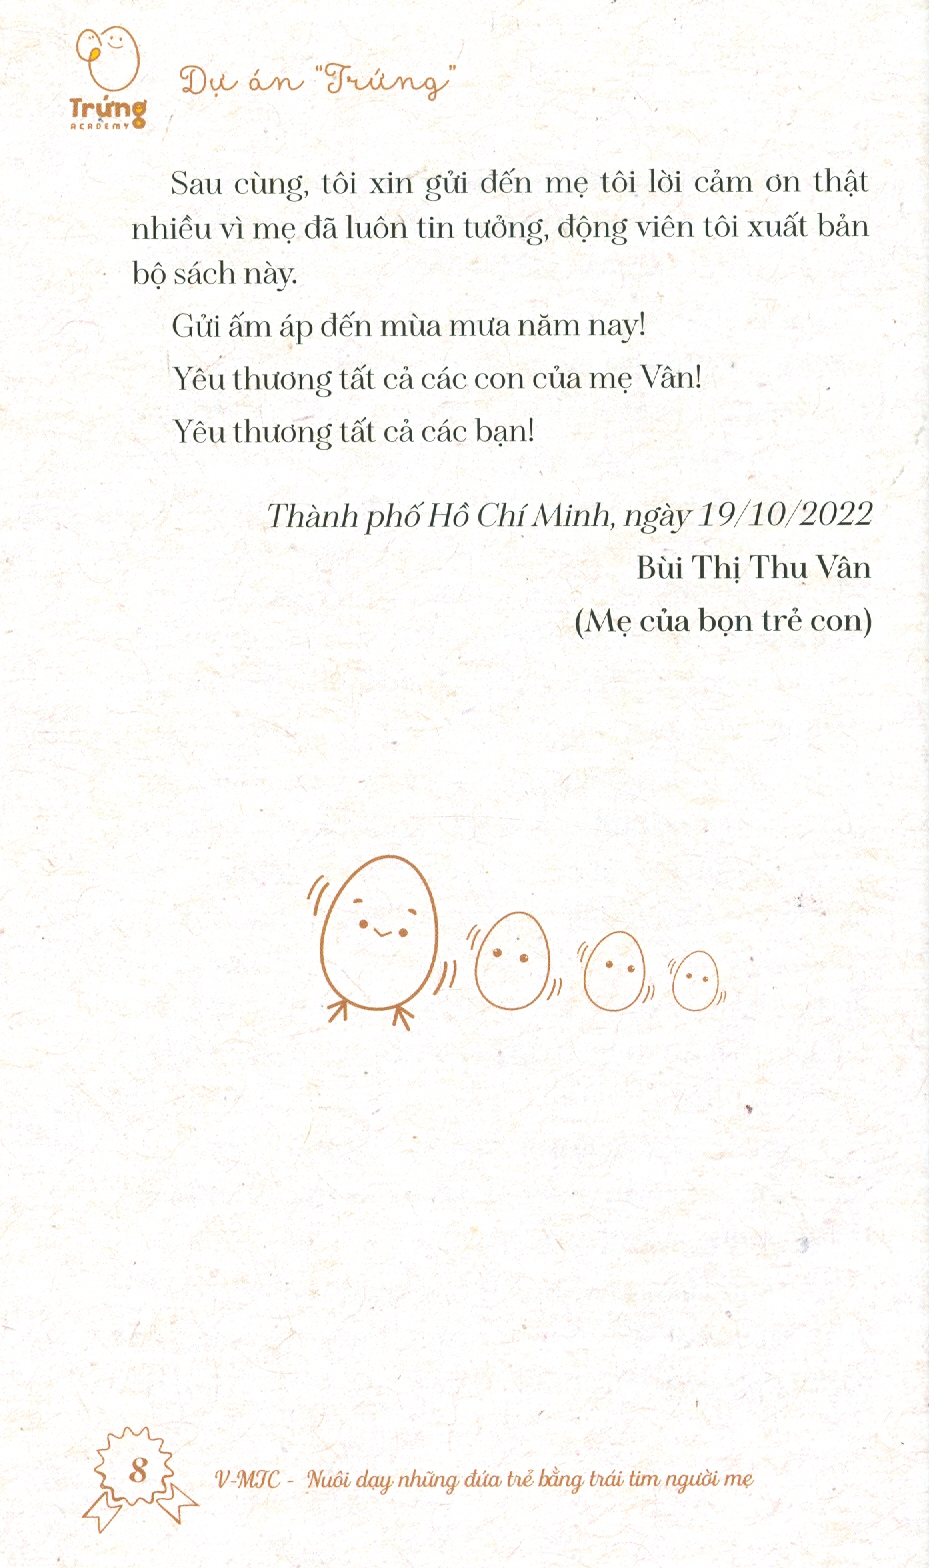 Trứng
ACADEMY
Dự án "Trứng"
Sau cùng, tôi xin gửi đến mẹ tôi lời cảm ơn thật
nhiều vì mẹ đã luôn tin tưởng, động viên tôi xuất bản
bộ sách này.
Gửi ấm áp đến mùa mưa năm nay!
Yêu thương tất cả các con của mẹ Vân!
Yêu thương tất cả các bạn!
Thành phố Hồ Chí Minh, ngày 19/10/2022
Bùi Thị Thu Vân
(Mẹ của bọn trẻ con)
8
V-MTC - Nuôi dạy những đứa trẻ bằng trái tim người mẹ